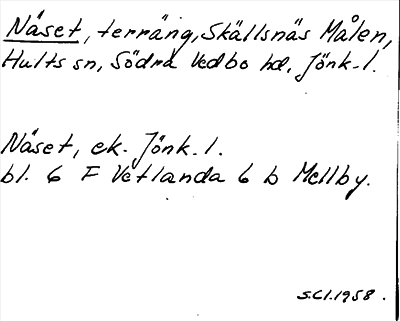 Näset, terräng, Skällsnäs Målen,
Hults sn, Södra Vedbo hd, Jönk. l.
Näset, ek. Jönk. l.
bl. 6 F Vetlanda 6 b Mellby.
S.Cl. 1958.